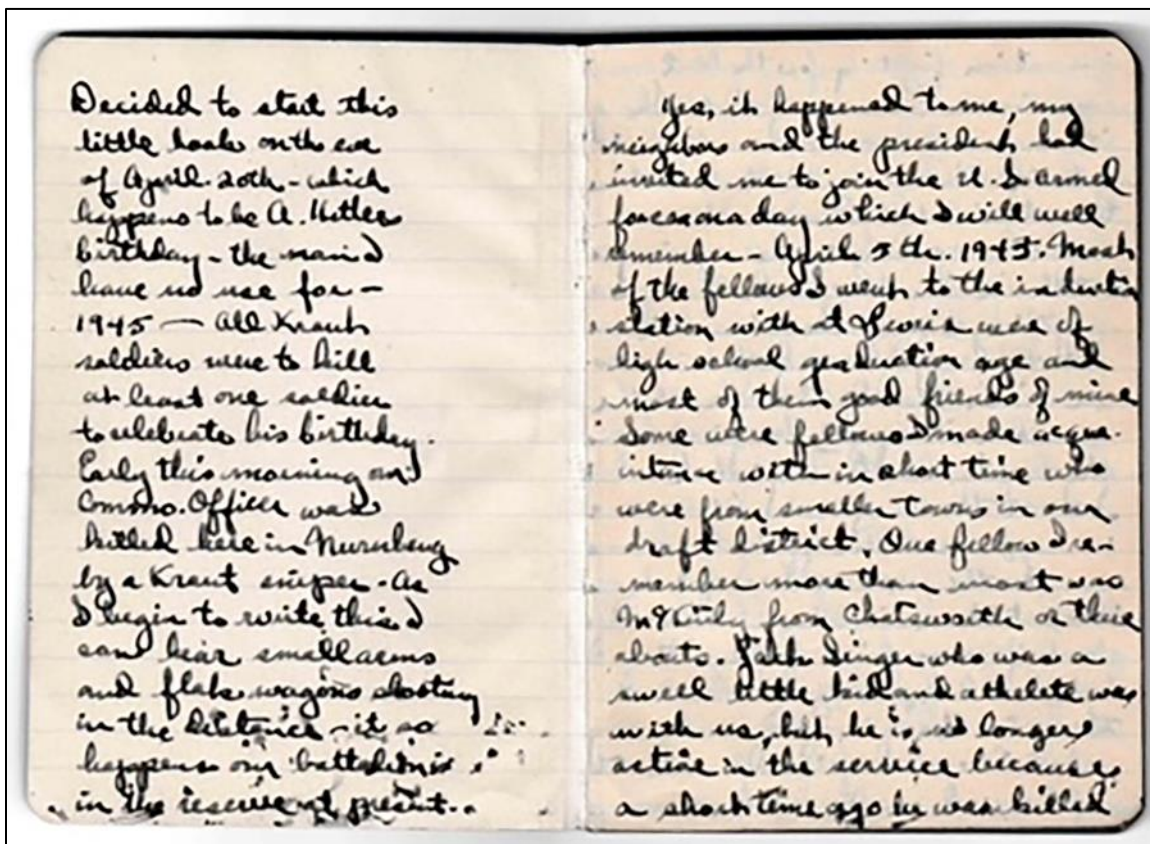 Decided to start this
little book on the eve
of April 20th - which
happens to be A. Hitler
birthday - the man I
have no use for -
1945 — All Kraut
soldiers were to kill
at least one soldier
to celebrate his birthday.
Early this morning our
Commo. Officer was
killed here in Nurnberg
by a Kraut sniper - As
I begin to write this I
can hear small arms
and flak wagons shooting
in the distance - it so
happens our battalion is
in the reserve at present.
Yes, it happened to me, my
neighbors and the president had
invited me to join the U.S. armed
forces on a day which I will well
remember - April 5th. 1943. Most
of the fellows I went to the induction
station with at were of
high school graduation age and
most of them good friends of mine
Some were fellows I made acqua-
intance with in short time who
were from smaller towns in our
draft district. One fellow I re-
member more than most was
from Chatsworth or there
abouts. Singer who was a
swell little kid and athelete was
with us, but he is no longer
active in the service because
a short time ago he was killed